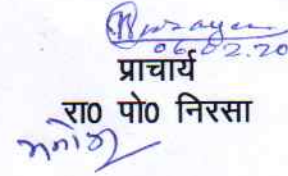 06.02.20
प्राचार्य
रा0 पो0 निरसा